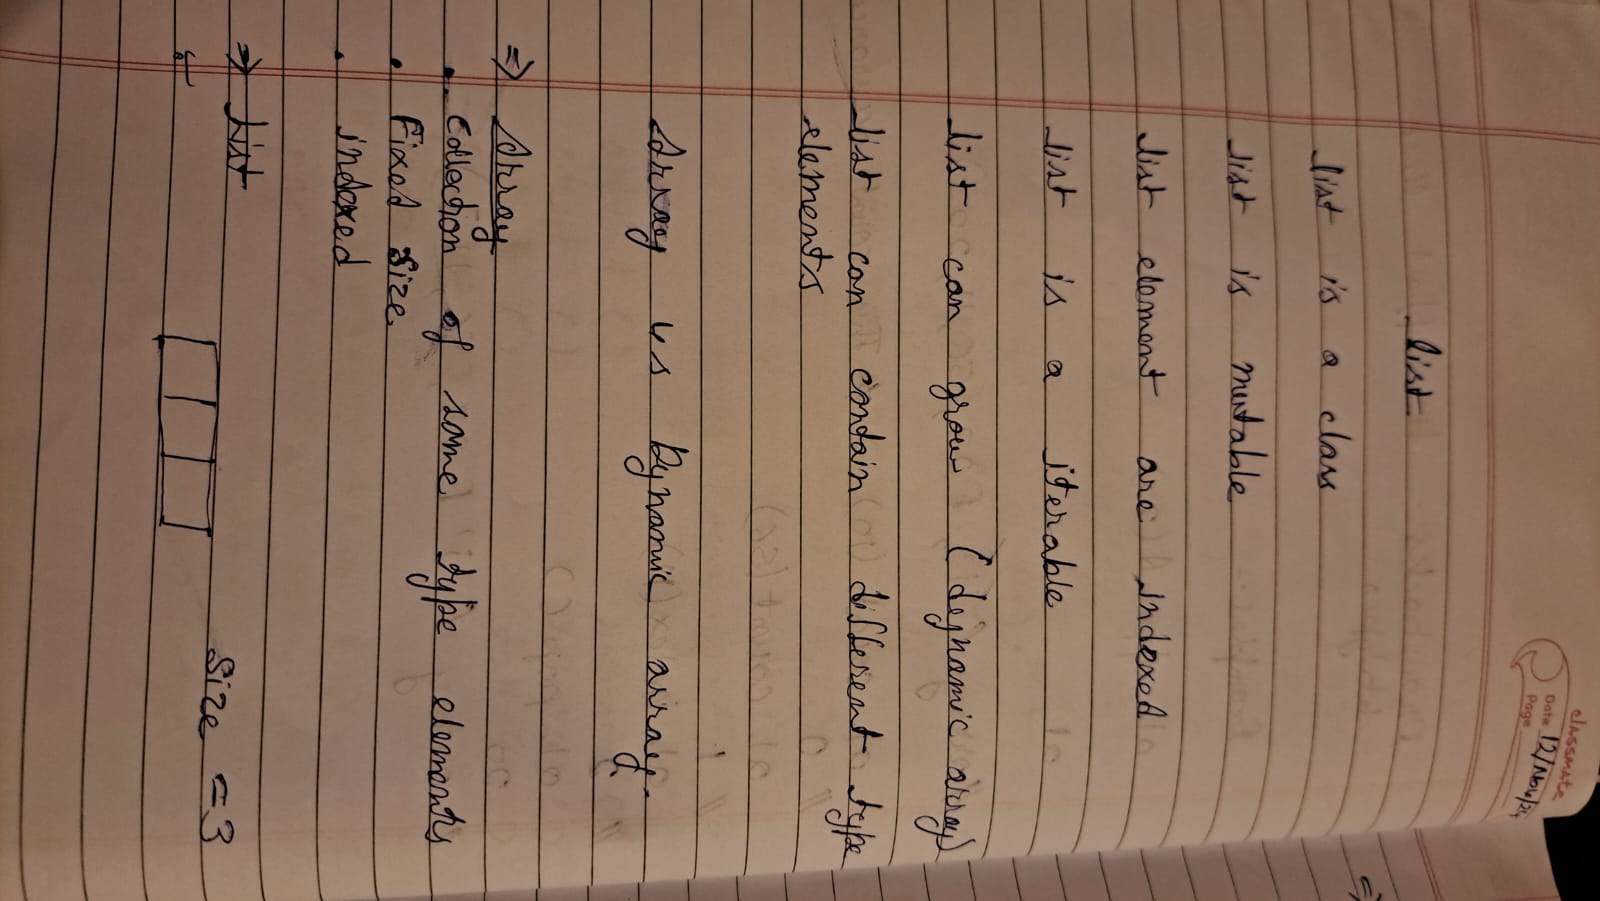 classmate
Date 12/Nov/24
Page
list
list is a class
list is mutable
list element are Indexed
list is a iterable
list can grow (dynamic array)
list can contain different type
elements
Array vs Dynamic array.
⇒ Array
• Collection of same type elements
• Fixed size
• indexed
⇒ List
Size = 3